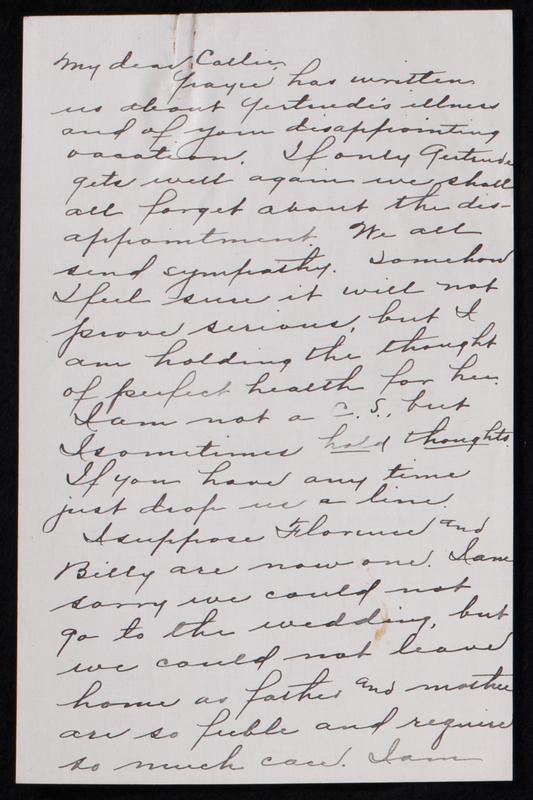 My dear Callie,
Grayce has written
us about Gertrude's illness
and of your disappointing
vacation. If only Gertrude
gets well again we shall
all forget about the dis-
appointment. We all
send sympathy. Somehow
I feel sure it will not
prove serious, but I
am holding the thought
of perfect health for her.
I am not a C. S., but
I sometimes hold thoughts.
If you have any time
just drop us a line.
I suppose Florence and
Billy are now one. I am
sorry we could not
go to the wedding, but
we could not leave
home as father and mother
are so feeble and require
so much care. I am